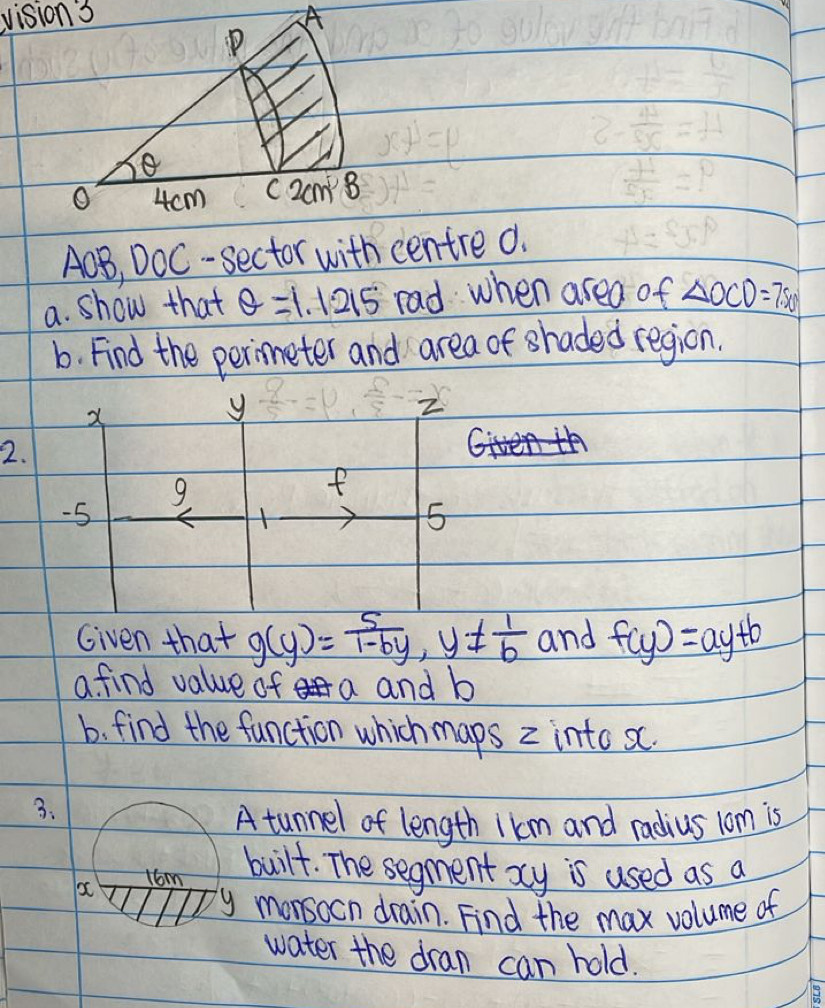 vision 3
A
D
θ
O 4cm C 2cm B
AOB, DOC - sector with centre O.
a. Show that θ = 1.1215 rad when area of △OCD = 7.5cm
b. Find the perimeter and area of shaded region.
x y z
2.
Given th
g f
-5 1 5
Given that g(y) = 5/1-by, y ≠ 1/b and f(y) = ay+b
a. find value of a and b
b. find the function which maps z into x.
3.
A tunnel of length 1km and radius 10m is
built. The segment xy is used as a
16m
x y
monsoon drain. Find the max volume of
water the dran can hold.